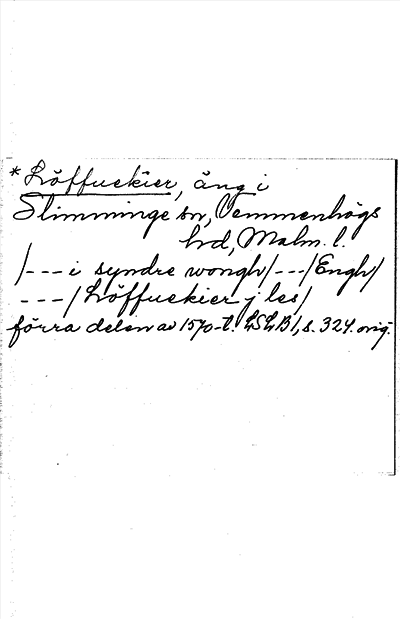 * Löffuekier, äng i
Slimminge sn, Vemmenhögs
hd, Malm. l.
/--- i syndre wongh/---/Engh/
---/Löffuekier j les/
förra delen av 1570-t. LSLB1, s. 324. orig.